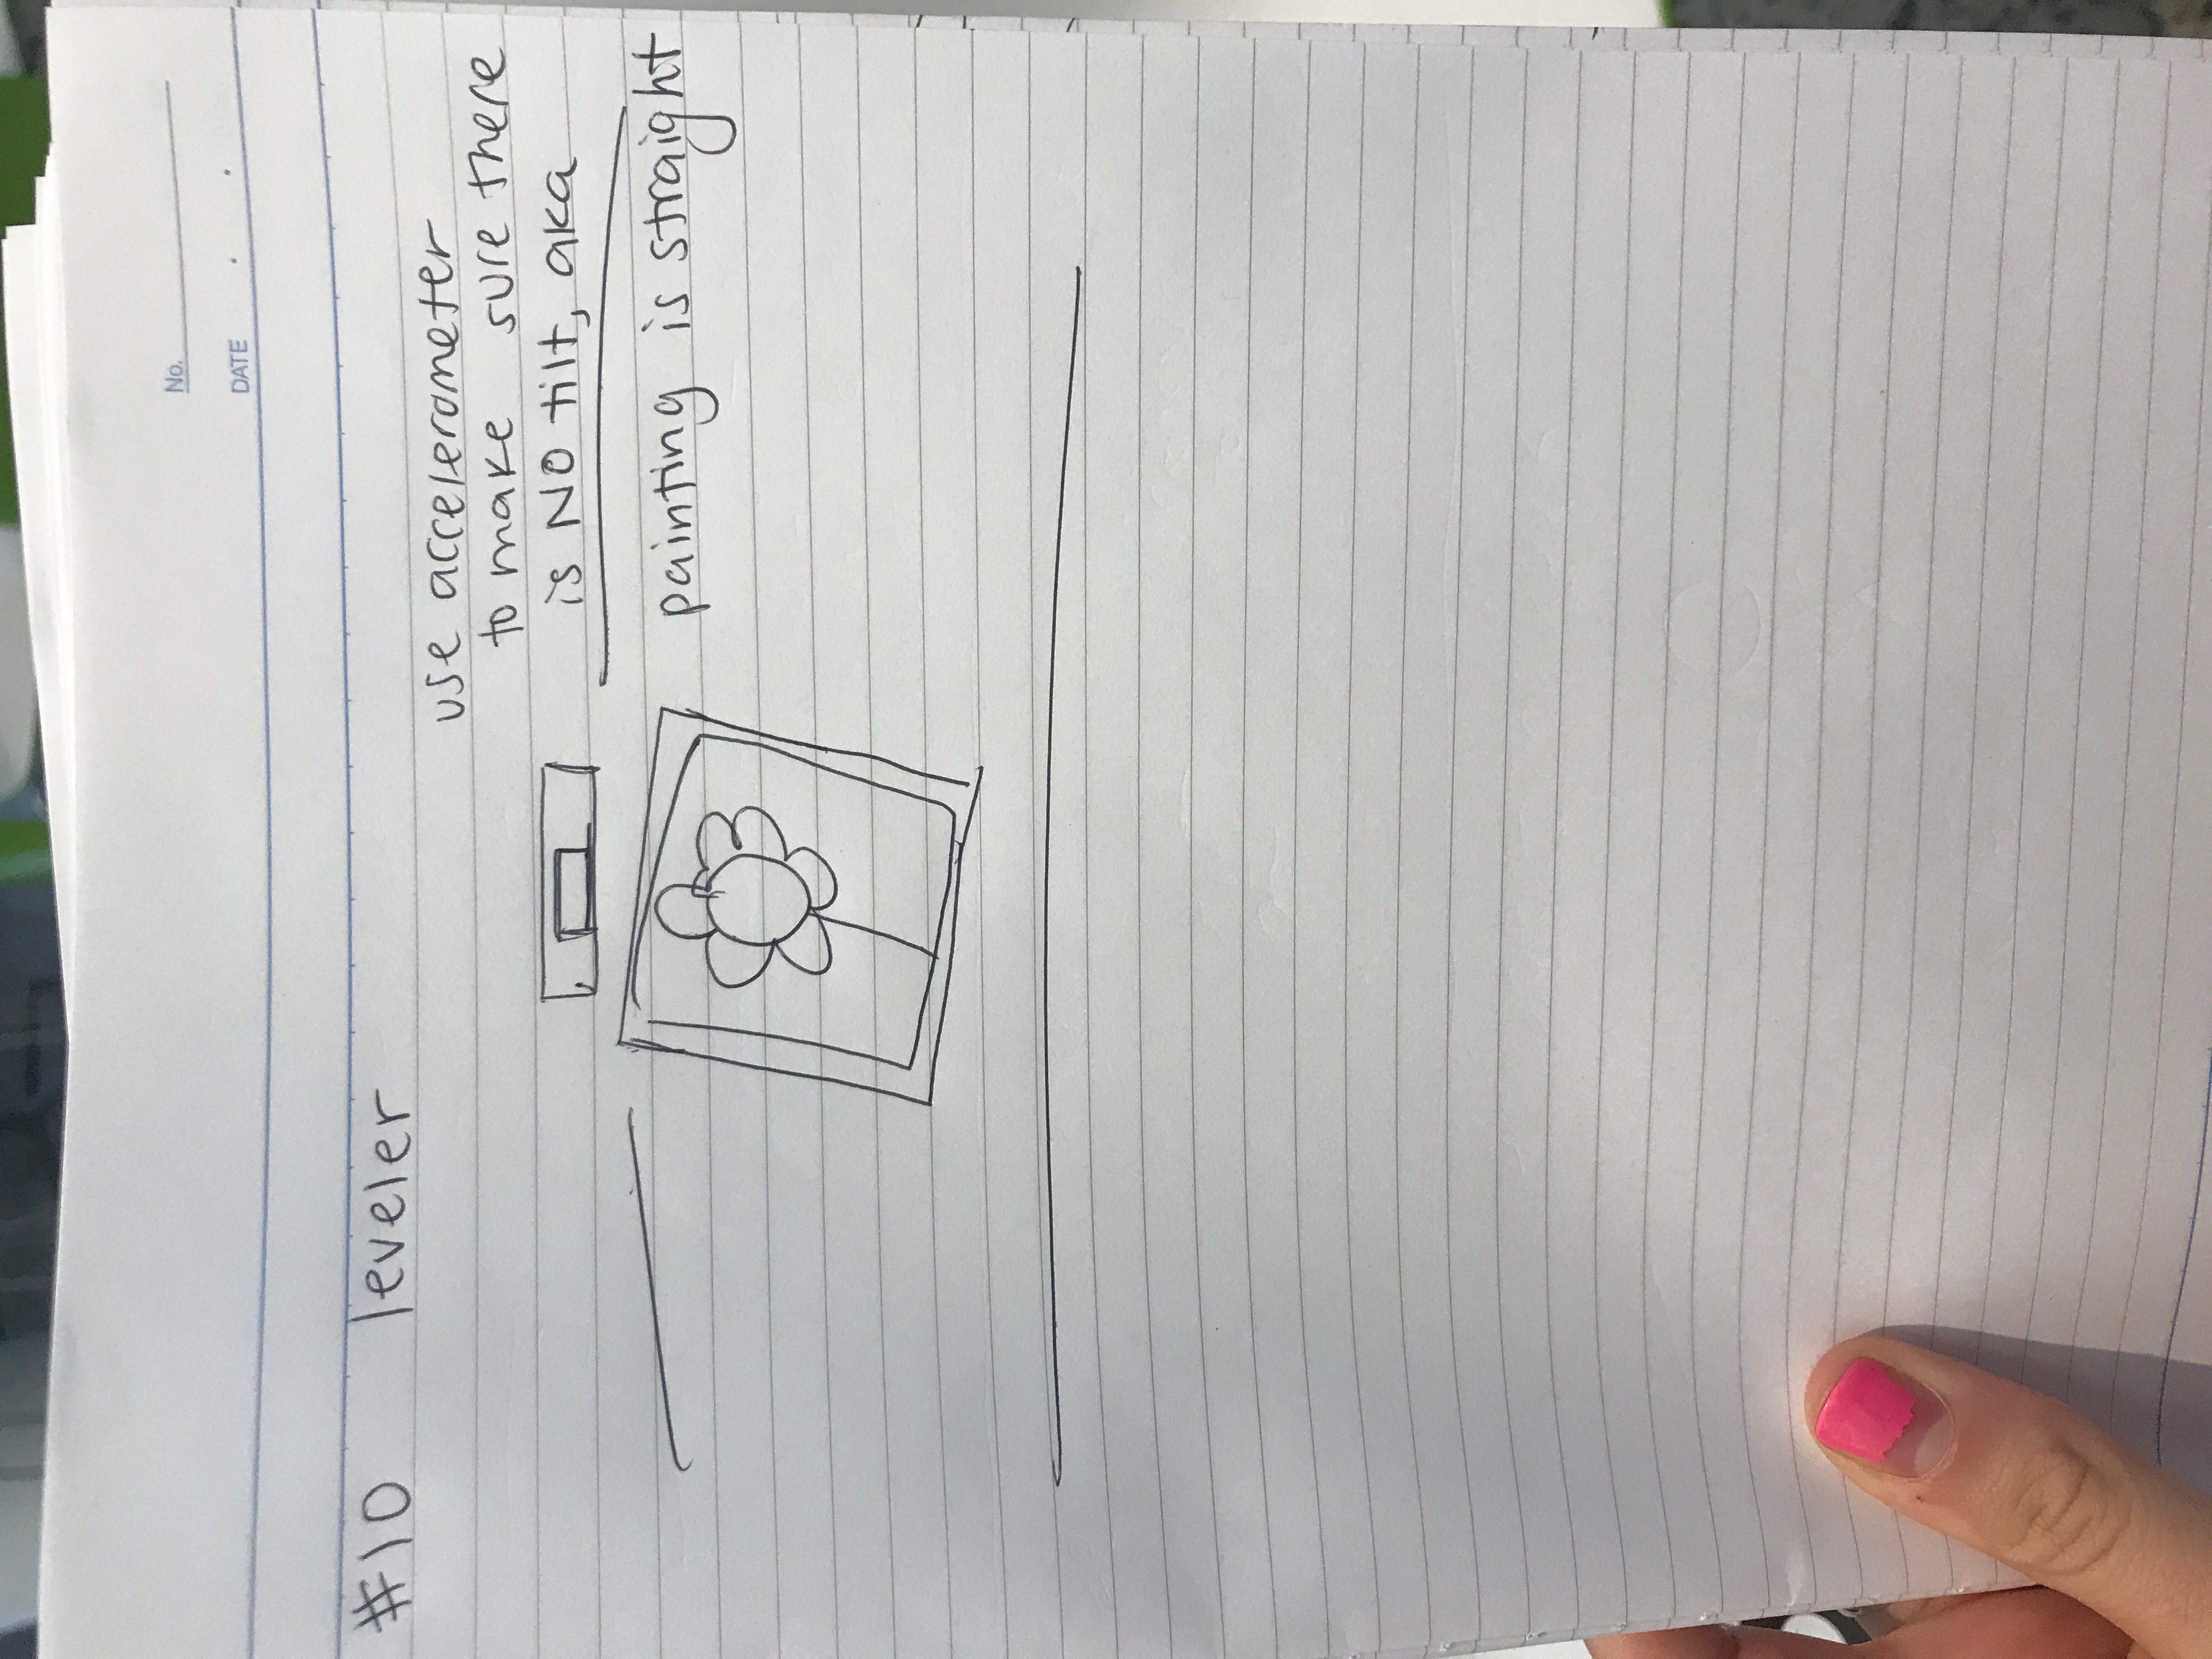 No.
DATE
#10 leveler
use accelerometer
to make sure there
is NO tilt, aka
painting is straight